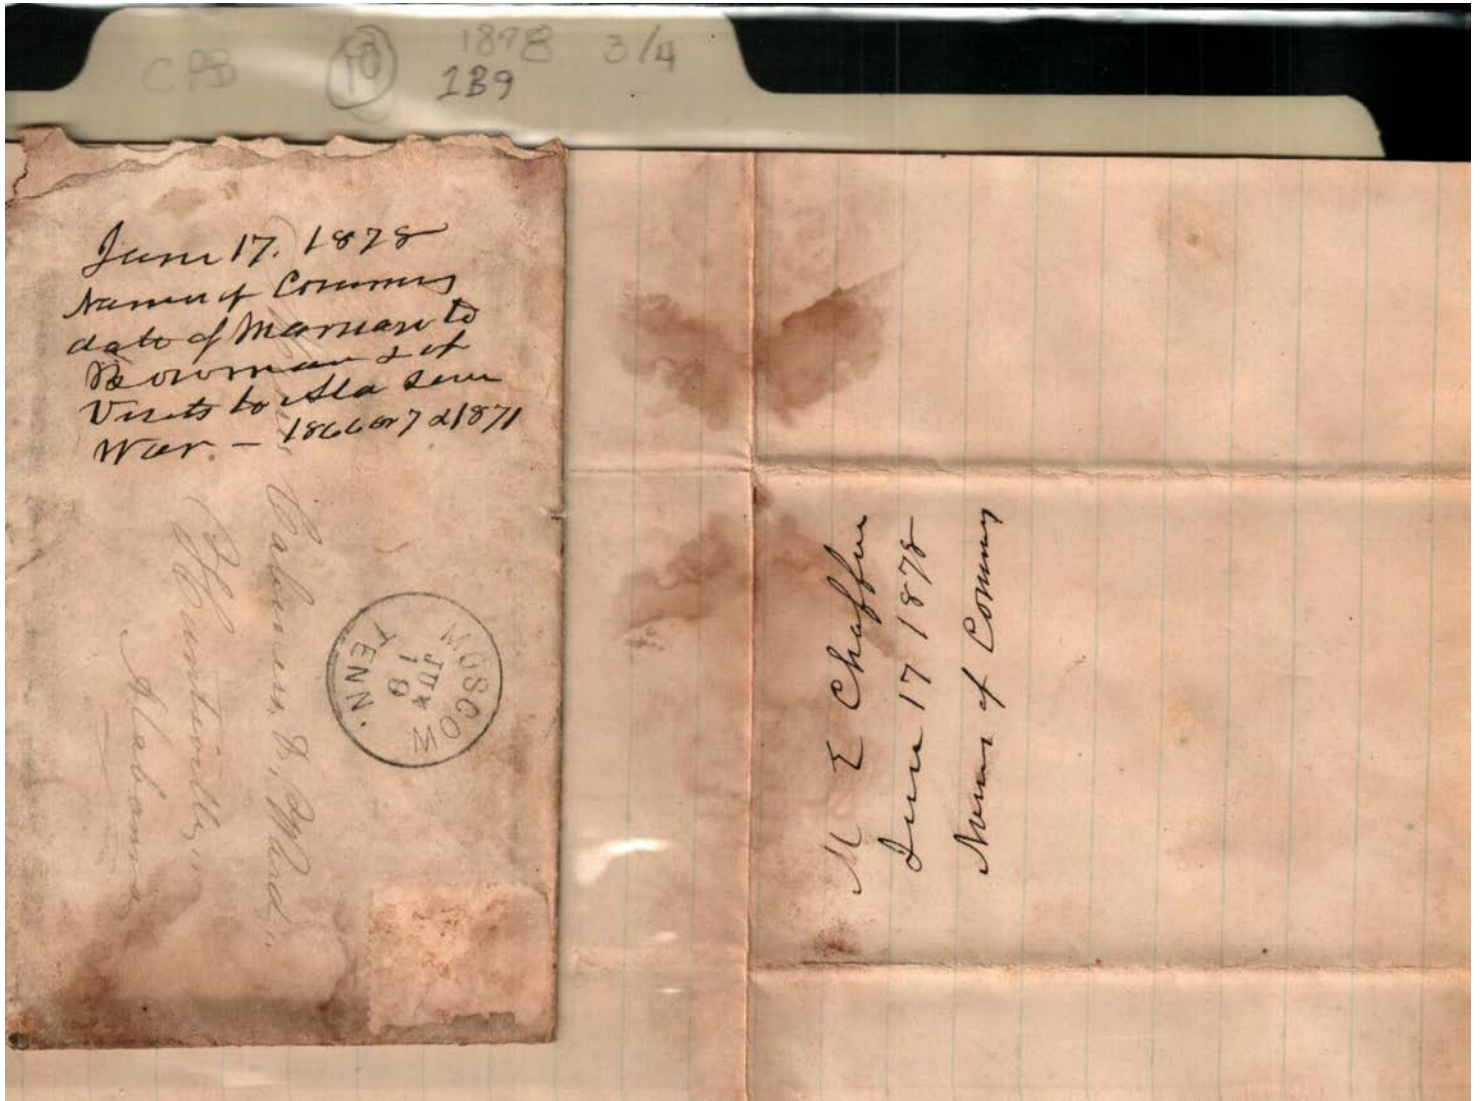 CPB 10 1878 3/4
1B9
June 17. 1878
Names of Commrs
date of Marriage to
Bowman & of
Visits to Ala since
War. – 1866 or 7 & 1871
Cabiness & Ward
Huntsville
Alabama
MOSCOW
JUN
19
TENN.
M E Chaffin
June 17 1878
Names of Commrs